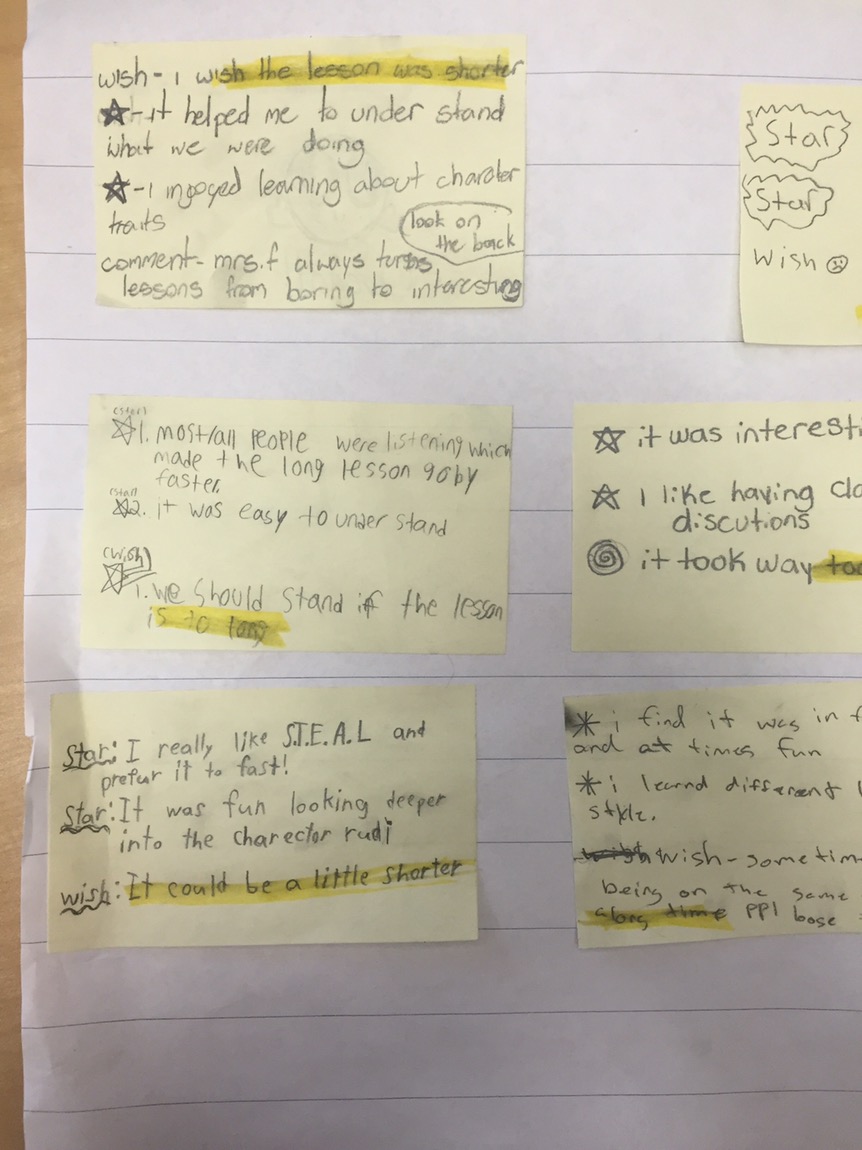 wish - i wish the lesson was shorter
- it helped me to under stand
what we were doing
- I injoyed learning about charater
traits
look on
the back
comment - mrs.f always turns
lessons from boring to interesting
Star
Star
Wish
(star)
1. most/all people were listening which
made the long lesson go by
faster.
(star)
2. it was easy to under stand
(wish)
1. we should stand if the lesson
is to long
it was interesti
I like having cla
discutions
it took way too
Star: I really like S.T.E.A.L and
prefur it to fast!
Star: It was fun looking deeper
into the charector rudi
wish: It could be a little shorter
* i find it was in f
and at times fun
* i learnd different
wish - sometim
being on the same
along time ppl